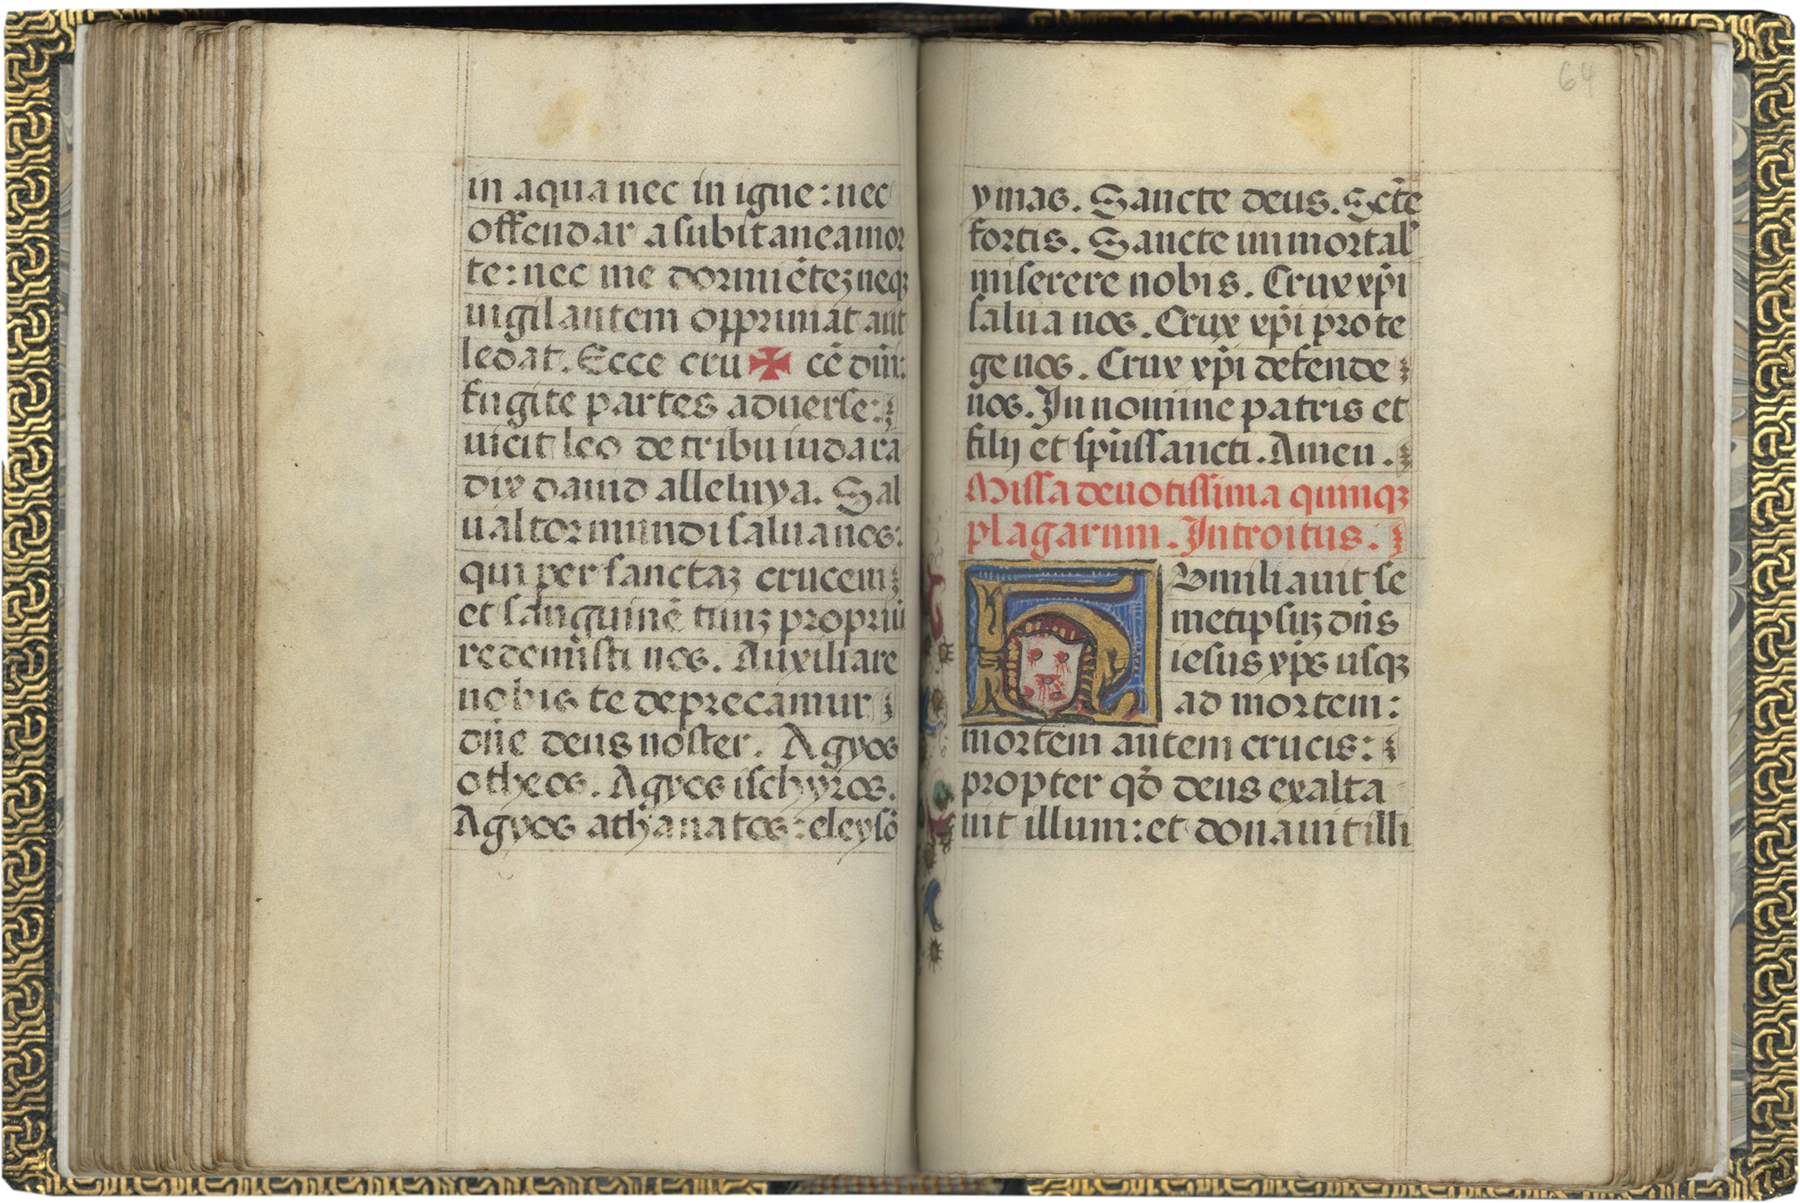 in aqua nec in igne: nec
offendar a subitanea mor
te: nec me dormiẽteʒ neqʒ
uigilantem opprimat aut
ledat. Ecce cru✠cẽ dñi:
fugite partes aduerse:
uicit leo de tribu iuda ra
dix dauid alleluya. Sal
ualtor mundi salua nos:
qui per sanctaʒ crucem
et sanguinẽ tuuʒ propriũ
redemisti nos. Auxiliare
nobis te deprecamur
dñe deus noster. Agyos
otheos. Agyos ischyros.
Agyos athanatos: eleysõ
64
ymas. Sancte deus. Sctẽ
fortis. Sancte immortal'
miserere nobis. Crux xp̃i
salua nos. Crux xp̃i prote
ge nos. Crux xp̃i defende
nos. In nomine patris et
filij et sp̃ussancti. Amen.
Missa deuotissima quinqʒ
plagarum. Introitus.
Humiliauit se
metipsuʒ dñs
iesus xp̃s usqʒ
ad mortem:
mortem autem crucis:
propter qđ deus exalta
uit illum: et donauit illi